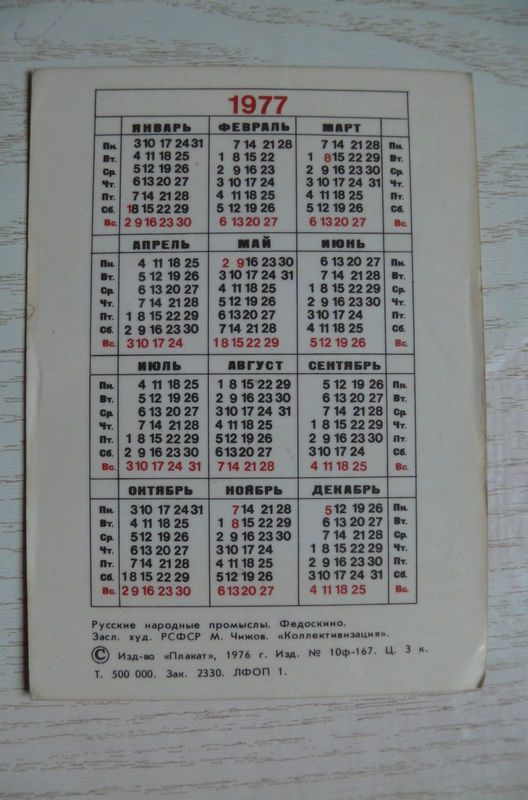 1977
ЯНВАРЬ ФЕВРАЛЬ МАРТ
Пн. 3 10 17 24 31 7 14 21 28 7 14 21 28 Пн.
Вт. 4 11 18 25 1 8 15 22 1 8 15 22 29 Вт.
Ср. 5 12 19 26 2 9 16 23 2 9 16 23 30 Ср.
Чт. 6 13 20 27 3 10 17 24 3 10 17 24 31 Чт.
Пт. 7 14 21 28 4 11 18 25 4 11 18 25 Пт.
Сб. 1 8 15 22 29 5 12 19 26 5 12 19 26 Сб.
Вс. 2 9 16 23 30 6 13 20 27 6 13 20 27 Вс.
АПРЕЛЬ МАЙ ИЮНЬ
Пн. 4 11 18 25 2 9 16 23 30 6 13 20 27 Пн.
Вт. 5 12 19 26 3 10 17 24 31 7 14 21 28 Вт.
Ср. 6 13 20 27 4 11 18 25 1 8 15 22 29 Ср.
Чт. 7 14 21 28 5 12 19 26 2 9 16 23 30 Чт.
Пт. 1 8 15 22 29 6 13 20 27 3 10 17 24 Пт.
Сб. 2 9 16 23 30 7 14 21 28 4 11 18 25 Сб.
Вс. 3 10 17 24 1 8 15 22 29 5 12 19 26 Вс.
ИЮЛЬ АВГУСТ СЕНТЯБРЬ
Пн. 4 11 18 25 1 8 15 22 29 5 12 19 26 Пн.
Вт. 5 12 19 26 2 9 16 23 30 6 13 20 27 Вт.
Ср. 6 13 20 27 3 10 17 24 31 7 14 21 28 Ср.
Чт. 7 14 21 28 4 11 18 25 1 8 15 22 29 Чт.
Пт. 1 8 15 22 29 5 12 19 26 2 9 16 23 30 Пт.
Сб. 2 9 16 23 30 6 13 20 27 3 10 17 24 Сб.
Вс. 3 10 17 24 31 7 14 21 28 4 11 18 25 Вс.
ОКТЯБРЬ НОЯБРЬ ДЕКАБРЬ
Пн. 3 10 17 24 31 7 14 21 28 5 12 19 26 Пн.
Вт. 4 11 18 25 1 8 15 22 29 6 13 20 27 Вт.
Ср. 5 12 19 26 2 9 16 23 30 7 14 21 28 Ср.
Чт. 6 13 20 27 3 10 17 24 1 8 15 22 29 Чт.
Пт. 7 14 21 28 4 11 18 25 2 9 16 23 30 Пт.
Сб. 1 8 15 22 29 5 12 19 26 3 10 17 24 31 Сб.
Вс. 2 9 16 23 30 6 13 20 27 4 11 18 25 Вс.
Русские народные промыслы. Федоскино.
Засл. худ. РСФСР М. Чижов. «Коллективизация».
© Изд-во «Плакат», 1976 г. Изд. № 10ф-167. Ц. 3 к.
Т. 500 000. Зак. 2330. ЛФОП 1.